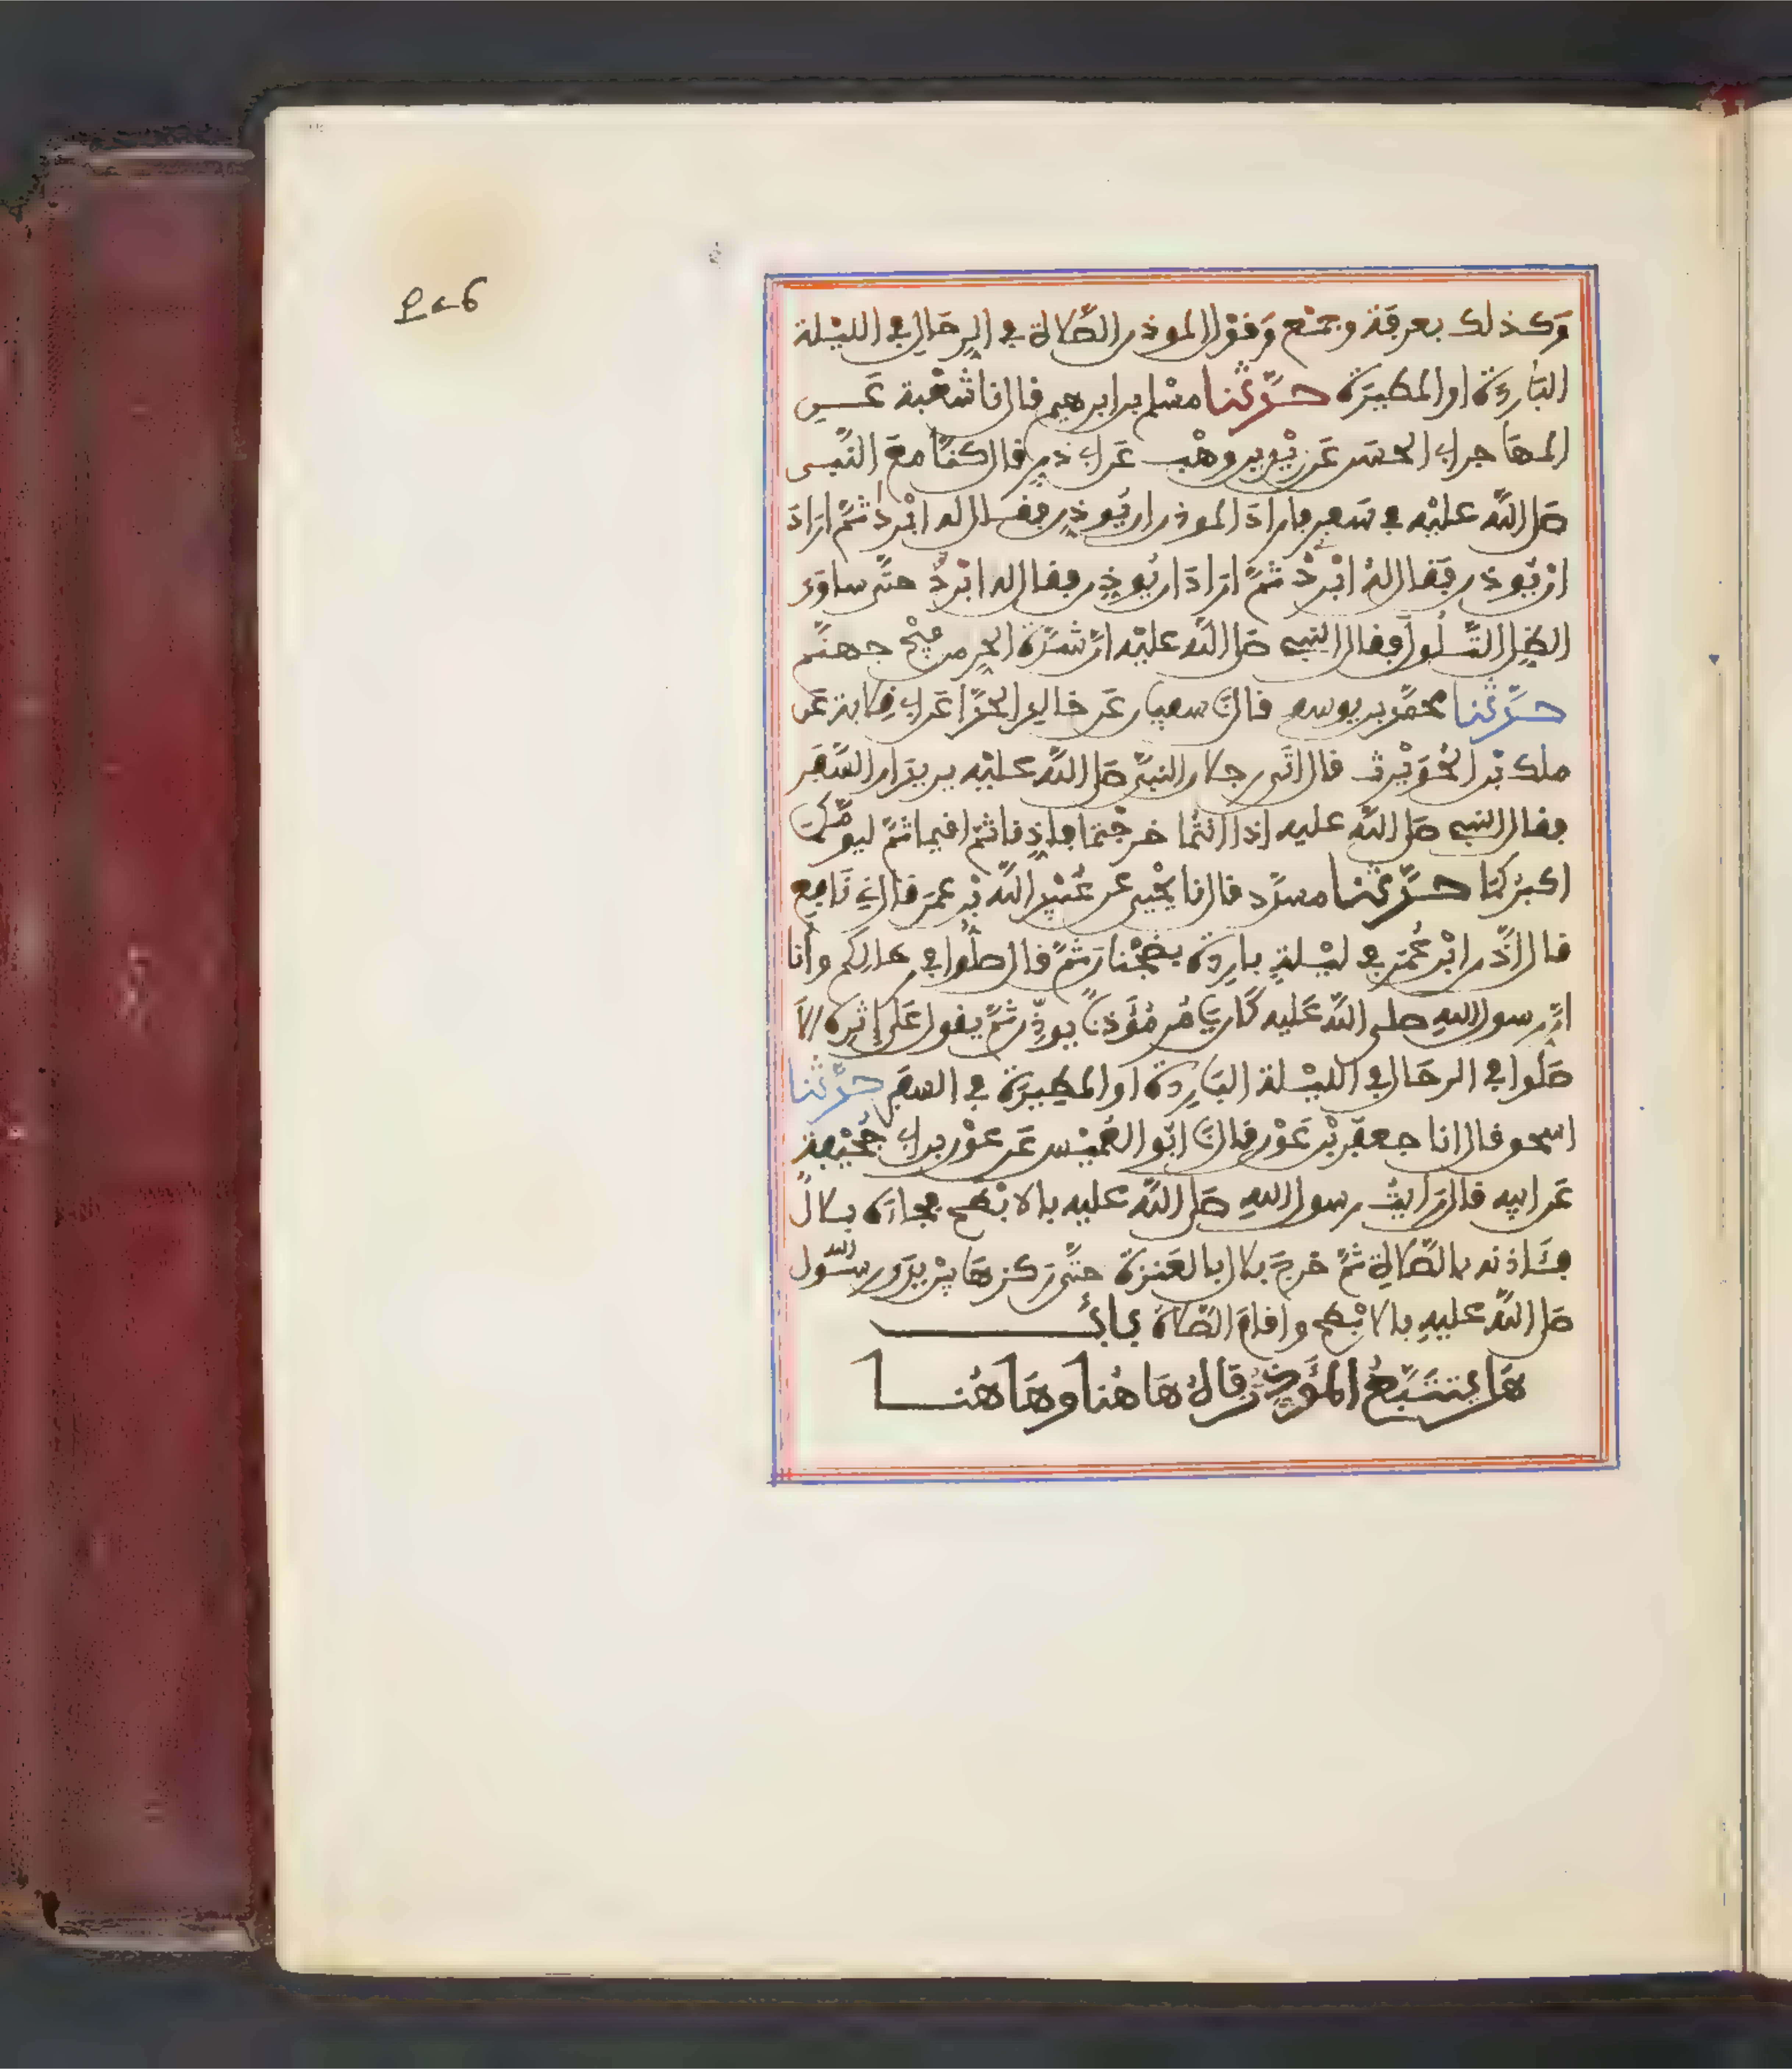 ع٢٩
وَكذلك بعرفة وجَمْع وَقوْل الموذن الصَّلاة في الرحَال في الليْلة
البَاردة او المطيرَة حدَّثنا مسْلم بن ابرهيم قال نا شعْبة عَـن
المهَاجر ابي الحسَن عَن زيْد بن وهْب عَن ابي ذر قال كنَّا معَ النَّبي
صَلى اللَّه عليْه في سَفر فاراَدَ الموذن ان يُوذن فقال له ابْردْ ثمَّ ارَادَ
ان يُوذن فقال لهُ ابْردْ ثمَّ ارَادَ ان يُوذن فقال له ابْردْ حتَّى ساوَى
الظل التُّلُولَ فقال النبي صَلى اللَّه عليْه انَّ شدَّة الحر من فيْح جهنَّم
حدَّثنا محمَّد بن يوسف قال نَا سفيان عَن خالد الحذَّا عَن ابي قِلابة عَن
ملك بْن الحُوَيْرث قال اتَى رجلان النبيَّ صَلى اللَّه عليْه يريدَان السَّفَر
فقال النبي صَلى اللَّه عليه إذا انتُما خرجْتما فاذِنا ثمَّ اقيما ثمَّ ليومَّكما
اكبرُكمَا حدَّثنا مسدَّد قال نا يحْيى عن عُبيْد اللَّه بْن عمَر قال ني نَافع
قال اذَّن ابْن عُمَر في ليْلةٍ بارِدة بضَجْنَان ثمَّ قال صَلُّوا في رحالكم وأنا
انَّ رسول اللهِ صلى اللَّه عَليه كَان يَامُر مُؤَذنًا يوذِّن ثمَّ يقول عَلى إثرِه ألاَ
صَلُّوا في الرحَال في الليْـلة البَارِدة او المطِيرَة في السفَر حدَّثنا
اسحق قال انا جعفَر بْن عَوْن قال نَا ابُو العُمَيْس عَن عوْن بن ابي جُحَيْفة
عَن ابيه قال رَايْتُ رسول اللهِ صَلى اللَّه عليه بالابْطح فجاءَه بـلالٌ
فَـئَاذنه بالصَّلاةِ ثمَّ خرجَ بلال بالعَنَزة حتَّى رَكزهَا بيْن يدَي رسُول الله
صَلى اللَّه عليهِ بالابْطح واقامَ الصَّلاة بابُ
هَل يتتبَّعُ المُؤَذِنُ فَاهُ هَاهُنا وهَاهُنـا